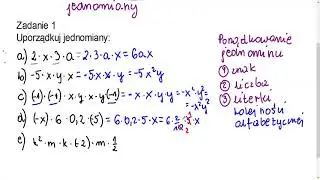 jednomiany
Zadanie 1
Uporządkuj jednomiany:
a) 2·x·3·a = 2·3·a·x = 6ax
b) -5·x·x·y = -5·x·x·y = -5x²y
c) (-1)·(-1)·x·x·y·y·(-1) = -x·x·y·y = -x²y²
-x²y²
d) (-x)·6·0,2·(-5) = 6·0,2·5·x = 6·
e) k²·m·k·(-2)·m·1/2
Porządkowanie
jednomianu
① znak
② liczba
③ literki
kolejności
alfabetycznej